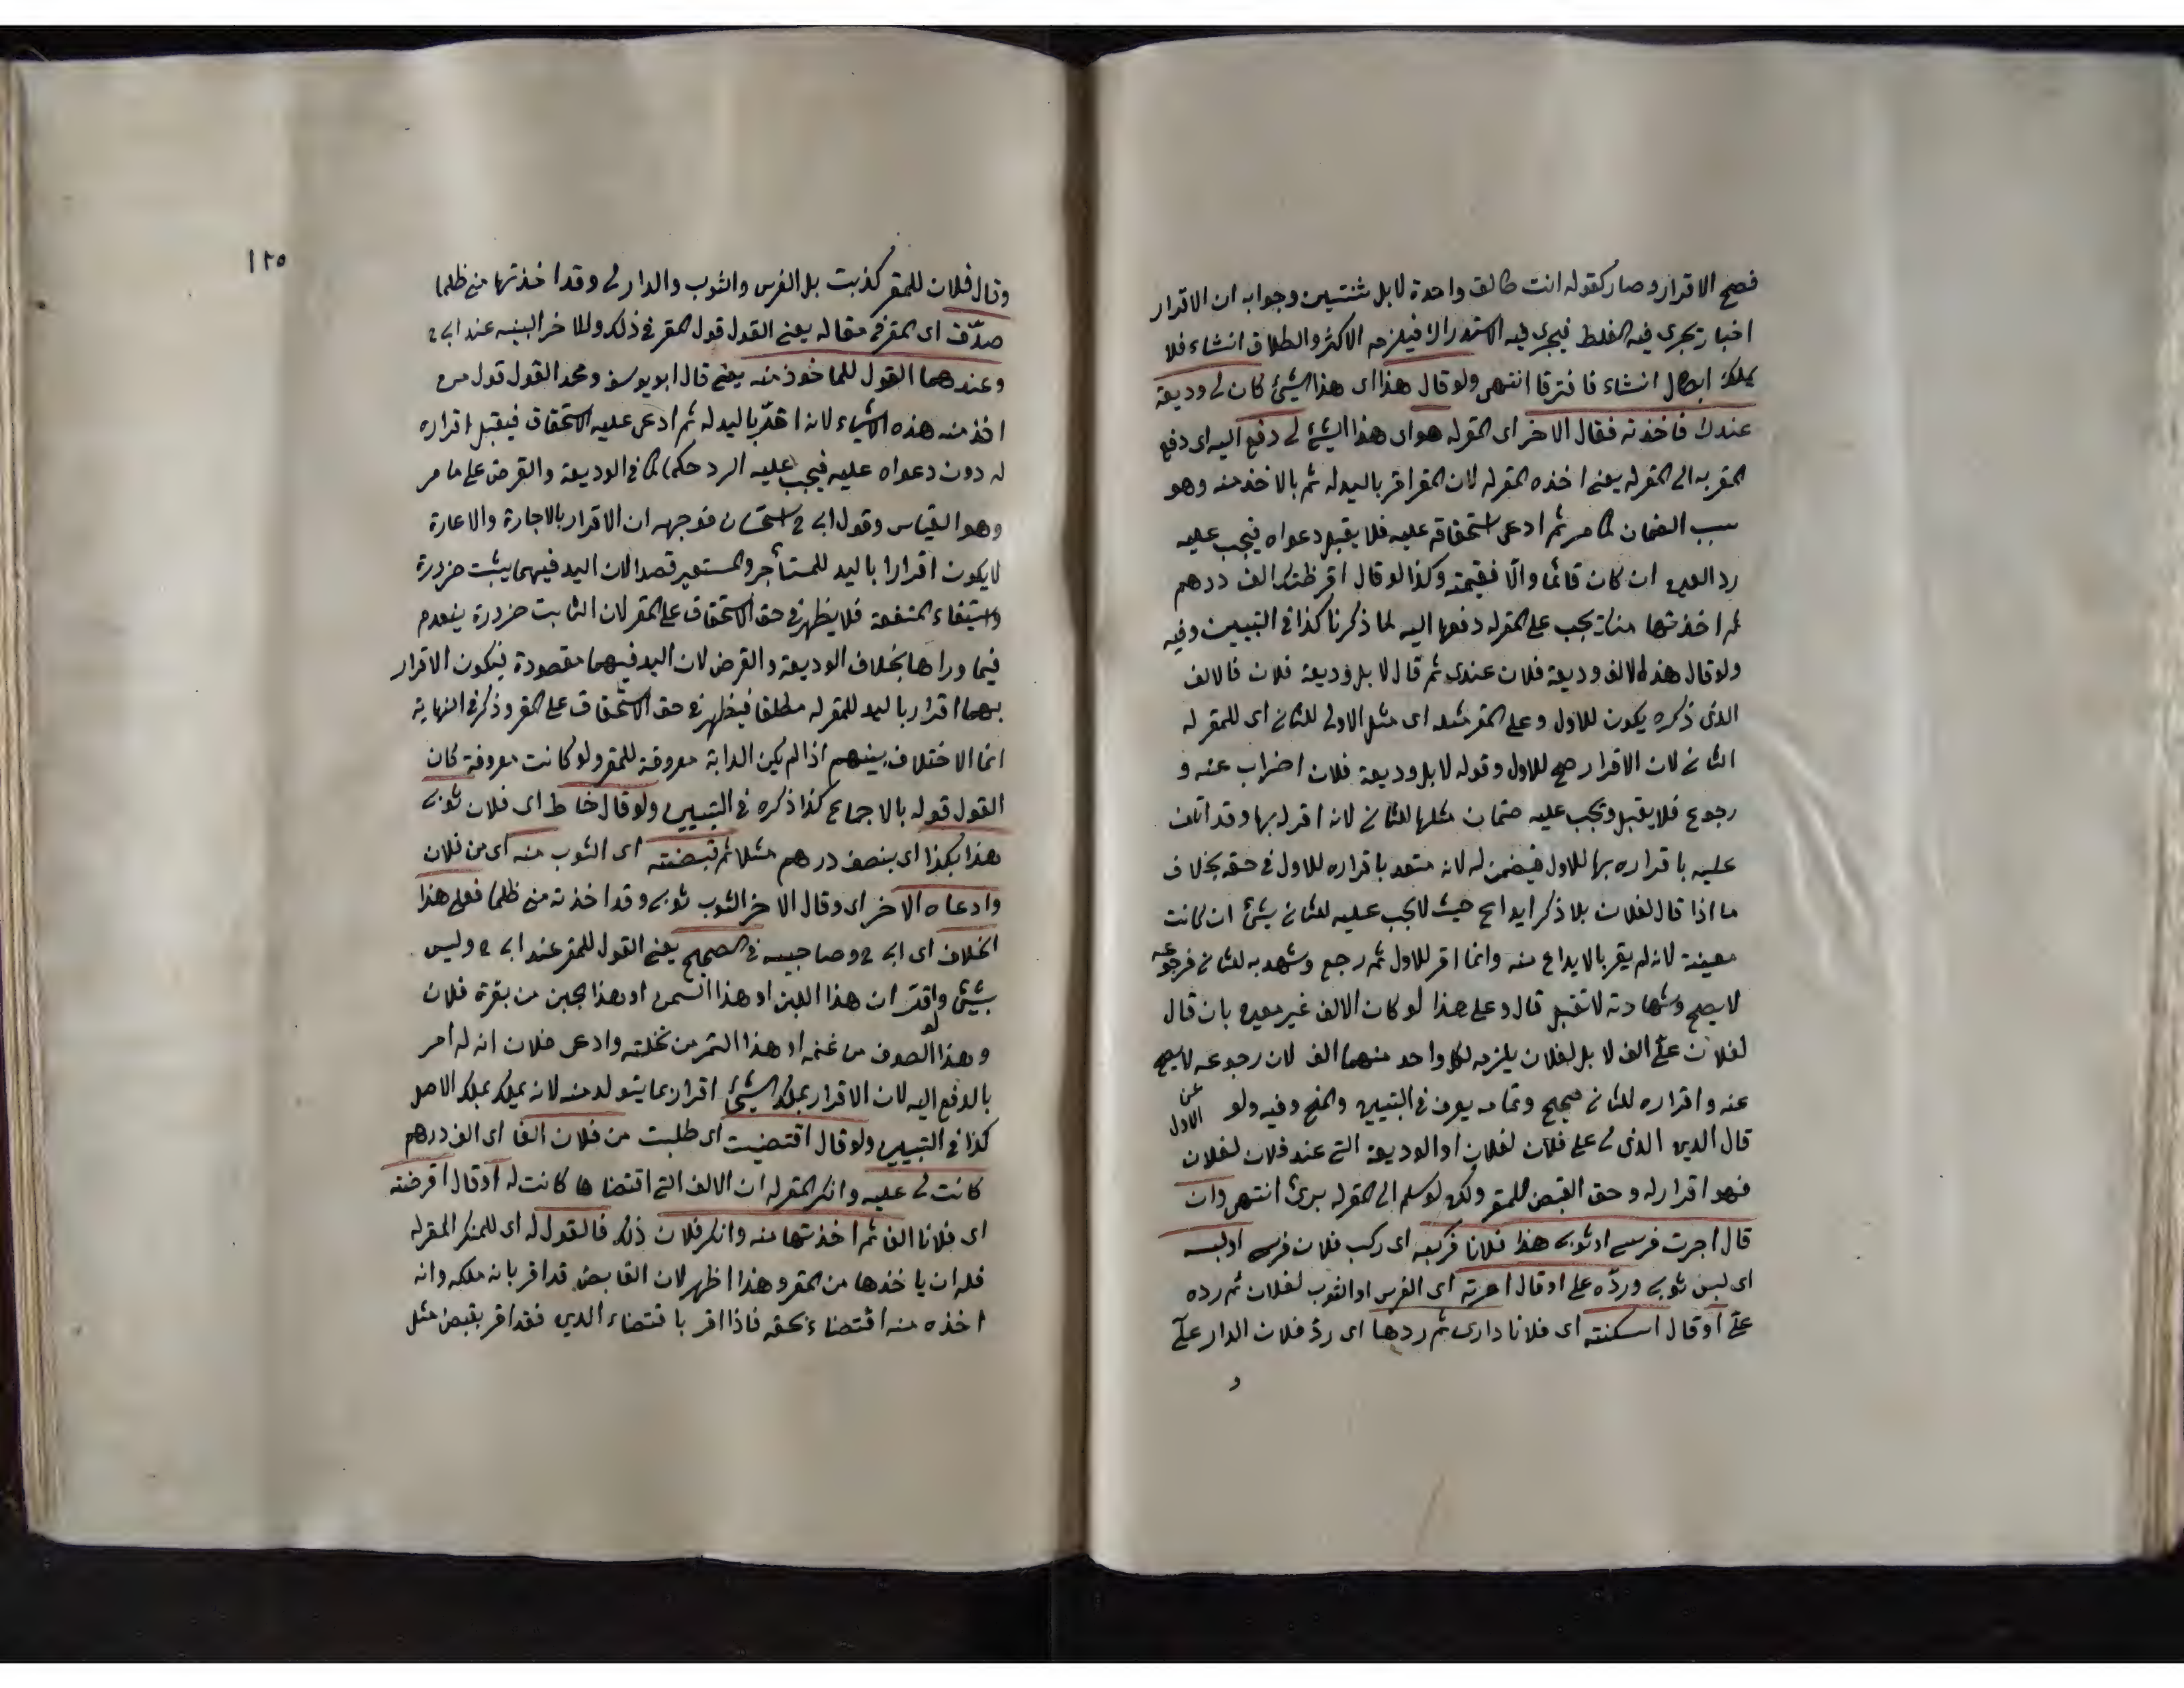 فصح الاقرار وصار كقوله انت طالق واحدة لا بل ثنتين وجوابه ان الاقرار
اخبار يجري فيه الغلط فيجري فيه الاستدراك فيلزمه الاكثر والطلاق انشاء فلا
يملك ابطال انشاء فافترقا انتهى ولو قال هذا اى هذا الشئ كان لى وديعة
عندك فاخذته فقال الاخر اى المقر له هو اى هذا الشئ لى دفع اليه اى دفع
المقر به الى المقر له يعنى اخذه المقر له لان المقر اقر باليد له ثم بالاخذ منه وهو
سبب الضمان كما مر ثم ادعى استحقاقه عليه فلا يقبل دعواه فيجب عليه
رد العين ان كان قائما والّا فقيمته وكذا لو قال اقرضتك الف درهم
ثم اخذتها منك يجب على المقر له دفعها اليه لما ذكرنا كذا فى التبيين وفيه
ولو قال هذه الالف وديعة فلان عندى ثم قال لا بل وديعة فلان فالالف
الذى ذكره يكون للاول وعلى المقر مثله اى مثل الاولى للثانى اى للمقر له
الثانى لان الاقرار صح للاول وقوله لا بل وديعة فلان اضراب عنه و
رجوع فلا يقبل ويجب عليه ضمان مثلها للثانى لانه اقر له بها وقد اتلف
عليه باقراره بها للاول فيضمن له لانه متعد باقراره للاول فى حقه بخلاف
ما اذا قال لفلان بلا ذكر ايداع حيث لا يجب عليه للثانى شئ ان كانت
معينة لانه لم يقر بالايداع منه وانما اقر للاول ثم رجع وشهد به للثانى فرجوعه
لا يصح وشهادته لا تقبل قال وعلى هذا لو كان الالف غير معين بان قال
لفلان علىّ الف لا بل لفلان يلزمه لكل واحد منهما الف لان رجوعه لا يصح
عن الاول
عنه واقراره للثانى صحيح وتمامه يعرف فى التبيين والمنح وفيه ولو
قال الدين الذى لى على فلان لفلان او الوديعة التى عند فلان لفلان
فهو اقرار له وحق القبض للمقر ولكن لو سلم الى المقر له برئ انتهى وان
قال اجرت فرسى او ثوبى هذا فلانا فركبه اى ركب فلان فرسى او لبسه
اى لبس ثوبى وردّه على او قال اعرته اى الفرس او الثوب لفلان ثم رده
علىّ او قال اسكنته اى فلانا دارى ثم ردها اى ردّ فلان الدار علىّ
و
١٢٥
وقال فلان للمقر كذبت بل الفرس والثوب والدار لى وقد اخذتها منى ظلما
صدّق اى المقر فى مقاله يعنى القول قول المقر فى ذلك وللاخر البينه عند ابى ح
وعندهما القول للماخوذ منه يعنى قال ابو يوسف ومحمد القول قول من
اخذ منه هذه الاشياء لانه اقرّ باليد له ثم ادعى عليه الاستحقاق فيقبل اقراره
له دون دعواه عليه فيجب عليه الرد حكما كما فى الوديعة والقرض على ما مر
وهو القياس وقول ابى ح استحسان فوجهه ان الاقرار بالاجارة والاعارة
لا يكون اقرارا باليد للمستأجر والمستعير قصدا لان اليد فيهما يثبت ضرورة
واستيفاء المنفعة فلا يظهر فى حق الاستحقاق على المقر لان الثابت ضرورة ينعدم
فيما وراها بخلاف الوديعة والقرض لان اليد فيهما مقصودة فيكون الاقرار
بهما اقرار باليد للمقر له مطلقا فيظهر فى حق الاستحقاق على المقر وذكر فى النهاية
انما الاختلاف بينهم اذا لم يكن الدابة معروفة للمقر ولو كانت معروفة كان
القول قوله بالاجماع كذا ذكره فى التبيين ولو قال خاط اى فلان ثوبى
هذا بكذا اى بنصف درهم مثلا ثم قبضته اى الثوب منه اى من فلان
وادعاه الاخر اى وقال الاخر الثوب ثوبى وقد اخذته منى ظلما فعلى هذا
الخلاف اى ابى ح وصاحبيه فى الصحيح يعنى القول للمقر عند ابى ح وليس
بشئ واقرّ ان هذا اللبن او هذا السمن او هذا الجبن من بقرة فلان
لو
وهذا الصوف من غنمه او هذا التمر من نخلته وادعى فلان انه له امر
بالدفع اليه لان الاقرار بملك الشئ اقرار بما يتولد منه لانه يملك بملك الاصل
كذا فى التبيين ولو قال اقتضيت اى طلبت من فلان الفا اى الف درهم
كانت لى عليه وانكر المقر له ان الالف التى اقتضاها كانت له او قال اقرضته
اى فلانا الفا ثم اخذتها منه وانكر فلان ذلك فالقول له اى للمنكر المقر له
فله ان ياخذها من المقر وهذا اظهر لان القابض قد اقر بانه ملكه وانه
اخذه منه اقتضاء بحقه فاذا اقر باقتضاء الدين فقد اقر بقبض مثل